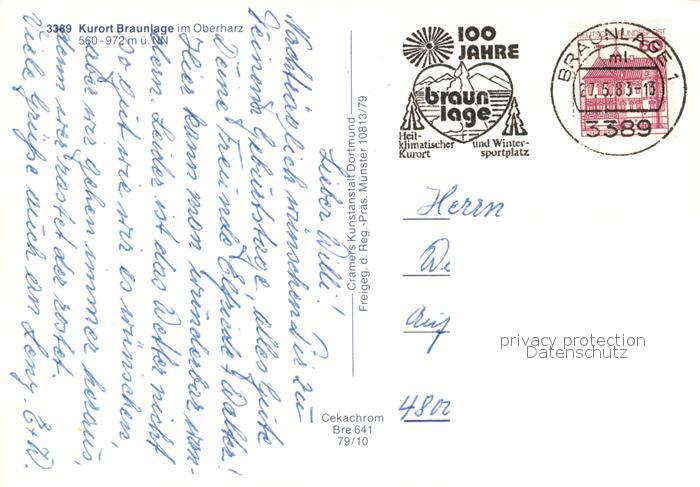 3389 Kurort Braunlage im Oberharz
560-972 m ü. NN
Lieber Willi!
Nachträglich wünschen Dir zu
Deinem Geburtstage alles Gute
Deine Freunde Elfriede + Walter!
Hier kann man wunderbar wan-
dern. Leider ist das Wetter nicht
so gut wie wir es wünschen,
aber wir gehen immer heraus,
denn wer rastet der rostet.
Viele Grüße auch an Leny. E+W.
Cramers Kunstanstalt Dortmund
Freigeg. d. Reg.-Präs. Münster 10813/79
Cekachrom
Bre 641
79/10
100
JAHRE
braun
lage
Heil-
klimatischer
Kurort
und Winter-
sportplatz
BRAUNLAGE 1
ml
27.6.83-13
3389
DEUTSCHE BUNDESPOST
60
Herrn
We
Auf
4800
privacy protection
Datenschutz